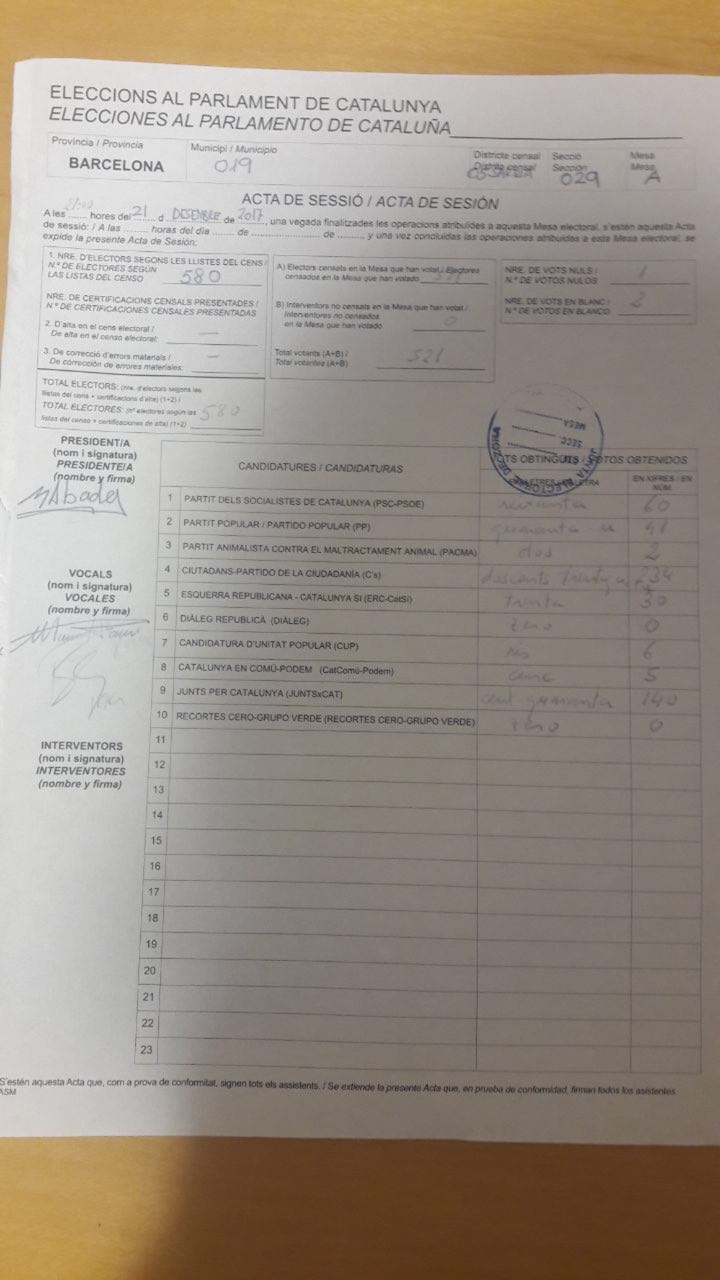 ELECCIONS AL PARLAMENT DE CATALUNYA
ELECCIONES AL PARLAMENTO DE CATALUÑA
Provincia / Provincia
BARCELONA
Municipi / Municipio
019
Districte censal
Distrito censal
Secció
Sección
029
Mesa
Mesa
A
ACTA DE SESSIÓ / ACTA DE SESIÓN
A les ........ hores del 21 d DESEMBRE de 2017, una vegada finalitzades les operacions atribuïdes a aquesta Mesa electoral, s'estén aquesta Acta
de sessió: / A las ........ horas del día ........ de ........................ de ........, y una vez concluidas las operaciones atribuidas a esta Mesa electoral, se
expide la presente Acta de Sesión:
1. NRE. D'ELECTORS SEGONS LES LLISTES DEL CENS /
N.º DE ELECTORES SEGÚN
LAS LISTAS DEL CENSO 580
NRE. DE CERTIFICACIONS CENSALS PRESENTADES /
N.º DE CERTIFICACIONES CENSALES PRESENTADAS
2. D'alta en el cens electoral / —
De alta en el censo electoral:
3. De correcció d'errors materials / —
De corrección de errores materiales:
TOTAL ELECTORS: (nre. d'electors segons les
llistes del cens + certificacions d'alta) (1+2) /
TOTAL ELECTORES: (nº electores según las
listas del censo + certificaciones de alta) (1+2) 580
A) Electors censats en la Mesa que han votat / Electores
censados en la Mesa que han votado
B) Interventors no censats en la Mesa que han votat /
Interventores no censados
en la Mesa que han votado 0
Total votants (A+B) /
Total votantes (A+B) 521
NRE. DE VOTS NULS / 1
N.º DE VOTOS NULOS
NRE. DE VOTS EN BLANC / 2
N.º DE VOTOS EN BLANCO
JUNTA ELECTORAL DE ZONA
SECC.
MESA
PRESIDENT/A
(nom i signatura)
PRESIDENTE/A
(nombre y firma)
MAbades
VOCALS
(nom i signatura)
VOCALES
(nombre y firma)
INTERVENTORS
(nom i signatura)
INTERVENTORES
(nombre y firma)
CANDIDATURES / CANDIDATURAS
VOTS OBTINGUTS / VOTOS OBTENIDOS
EN LLETRES / EN LETRA
EN XIFRES / EN NÚM.
1 PARTIT DELS SOCIALISTES DE CATALUNYA (PSC-PSOE) seixanta 60
2 PARTIT POPULAR / PARTIDO POPULAR (PP) quaranta-u 41
3 PARTIT ANIMALISTA CONTRA EL MALTRACTAMENT ANIMAL (PACMA) dos 2
4 CIUTADANS-PARTIDO DE LA CIUDADANÍA (C's) 234
5 ESQUERRA REPUBLICANA - CATALUNYA SI (ERC-CatSí) trenta 30
6 DIÀLEG REPUBLICÀ (DIÀLEG) zero 0
7 CANDIDATURA D'UNITAT POPULAR (CUP) sis 6
8 CATALUNYA EN COMÚ-PODEM (CatComú-Podem) cinc 5
9 JUNTS PER CATALUNYA (JUNTSxCAT) cent quaranta 140
10 RECORTES CERO-GRUPO VERDE (RECORTES CERO-GRUPO VERDE) zero 0
11
12
13
14
15
16
17
18
19
20
21
22
23
S'estén aquesta Acta que, com a prova de conformitat, signen tots els assistents. / Se extiende la presente Acta que, en prueba de conformidad, firman todos los asistentes.
ASM